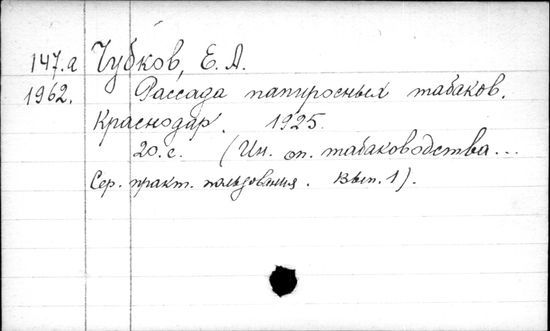 147.a Чубков, Е. А.
1962. Рассада папиросных табаков.
Краснодар. 1925.
20. с. (Ин. оп. табаководства...
Сер. практ. пользования. Вып. 1).